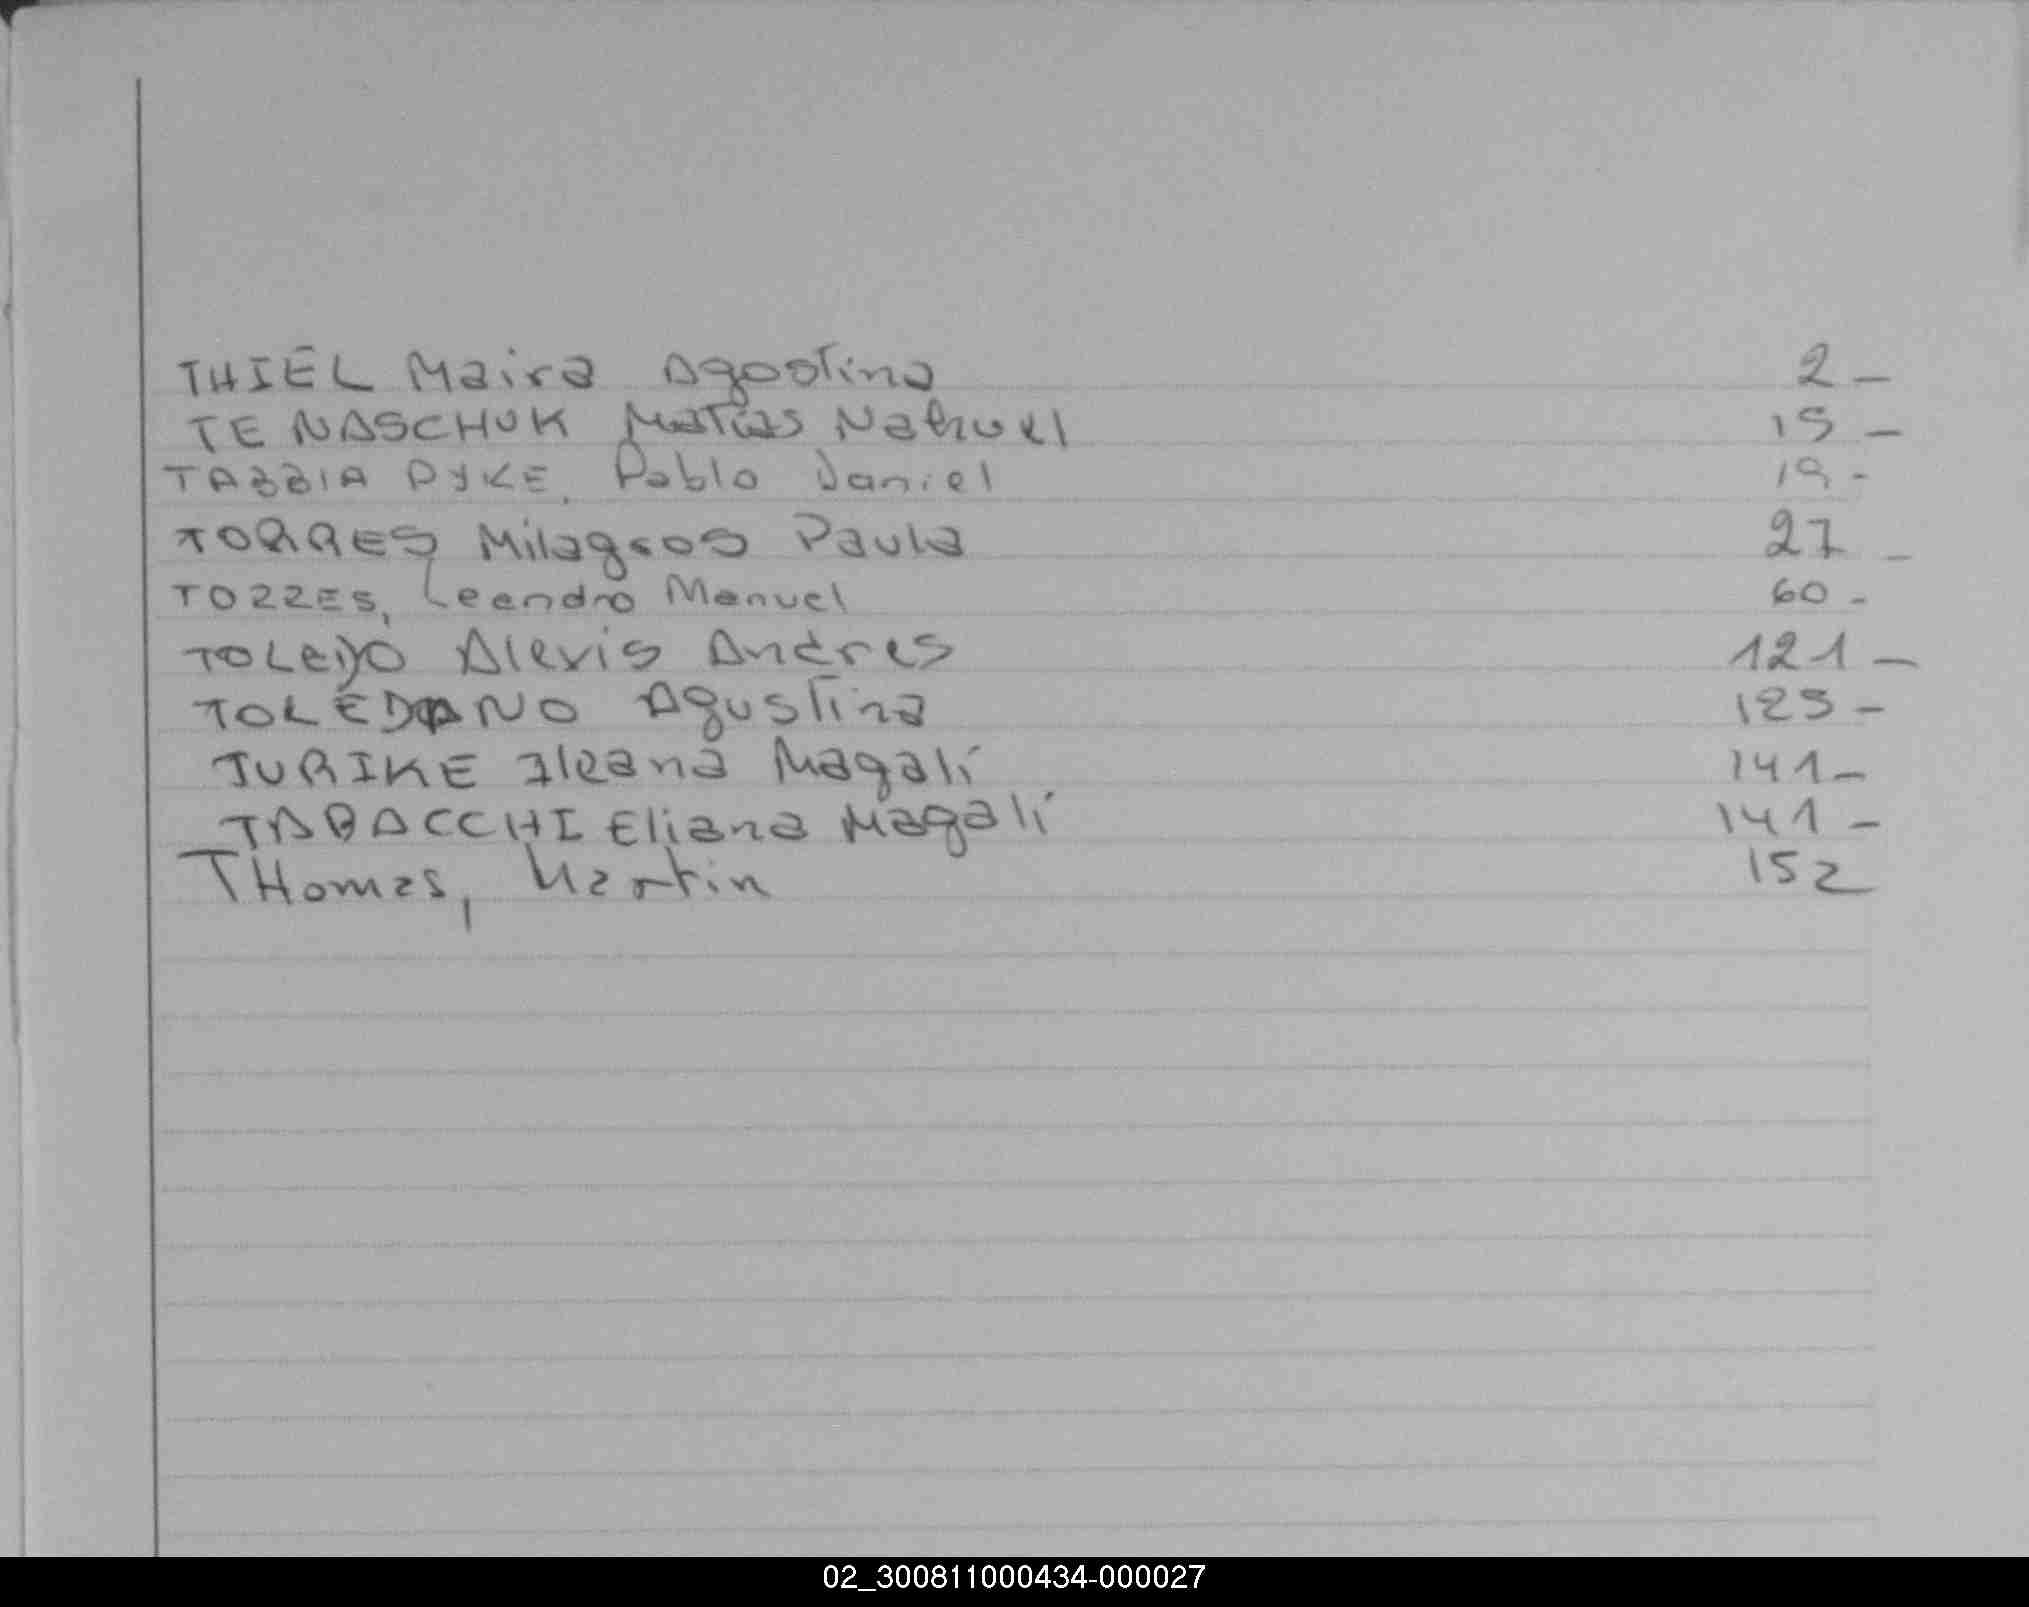 THIEL Maira Agostina 2 -
TENASCHUK Matias Nahuel 15 -
TABBIA PYKE, Pablo Daniel 19 -
TORRES Milagros Paula 27 -
TORRES, Leandro Manuel 60 -
TOLEDO Alexis Andres 121 -
TOLEDANO Agustina 125 -
TURIKE Ileana Magalí 141 -
TABACCHI Eliana Magalí 141 -
THomas, Martin 152
02_300811000434-000027